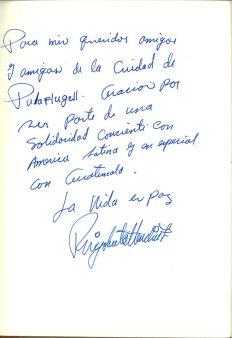 Para mis queridos amigos
y amigas de la Ciudad de
Palafrugell. Gracias por
ser parte de una
Solidaridad Conciente con
America Latina y en especial
con Guatemala.
La Vida es paz
Rigoberta Menchú T